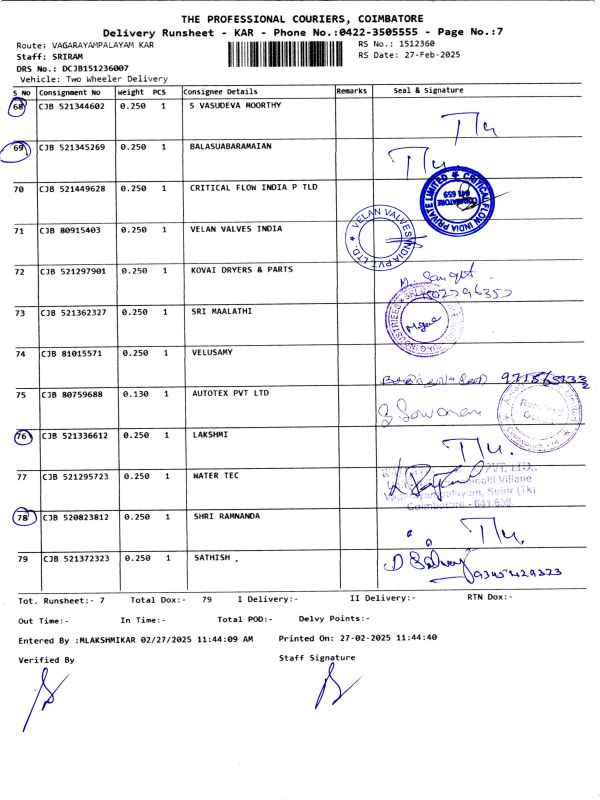 THE PROFESSIONAL COURIERS, COIMBATORE
Delivery Runsheet - KAR - Phone No.:0422-3505555 - Page No.:7
Route: VAGARAYAMPALAYAM KAR
RS No.: 1512360
Staff: SRIRAM
RS Date: 27-Feb-2025
DRS No.: DCJB151236007
Vehicle: Two Wheeler Delivery
S No Consignment No Weight PCS Consignee Details Remarks Seal & Signature
68 CJB 521344602 0.250 1 S VASUDEVA MOORTHY
69 CJB 521345269 0.250 1 BALASUABARAMAIAN
70 CJB 521449628 0.250 1 CRITICAL FLOW INDIA P TLD
CRITICAL FLOW INDIA PRIVATE LIMITED
COIMBATORE
641 659
71 CJB 80915403 0.250 1 VELAN VALVES INDIA
VELAN VALVES INDIA PVT LTD.
72 CJB 521297901 0.250 1 KOVAI DRYERS & PARTS
73 CJB 521362327 0.250 1 SRI MAALATHI
74 CJB 81015571 0.250 1 VELUSAMY
75 CJB 80759688 0.130 1 AUTOTEX PVT LTD
76 CJB 521336612 0.250 1 LAKSHMI
77 CJB 521295723 0.250 1 WATER TEC
Coimbatore - 641 659
78 CJB 520823812 0.250 1 SHRI RAMNANDA
79 CJB 521372323 0.250 1 SATHISH .
Tot. Runsheet:- 7 Total Dox:- 79 I Delivery:- II Delivery:- RTN Dox:-
Out Time:- In Time:- Total POD:- Delvy Points:-
Entered By :MLAKSHMIKAR 02/27/2025 11:44:09 AM Printed On: 27-02-2025 11:44:40
Verified By Staff Signature